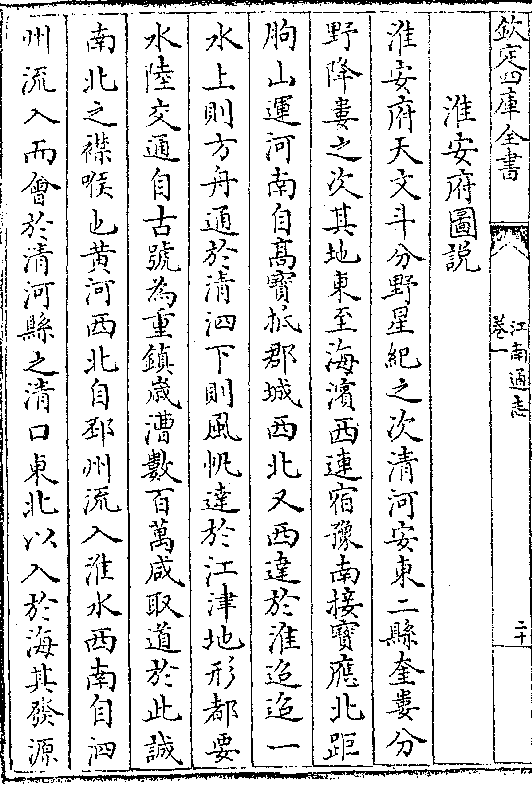 欽定四庫全書
江南通志
卷一
二十
淮安府圖説
淮安府天文斗分野星紀之次清河安東二縣奎婁分
野降婁之次其地東至海濱西連宿豫南接寶應北距
朐山運河南自髙寶抵郡城西北又西達於淮迢迢一
水上則方舟通於清泗下則風帆達於江津地形都要
水陸交通自古號為重鎮嵗漕數百萬咸取道於此誠
南北之襟喉也黄河西北自邳州流入淮水西南自泗
州流入而會於清河縣之清口東北以入於海其發源